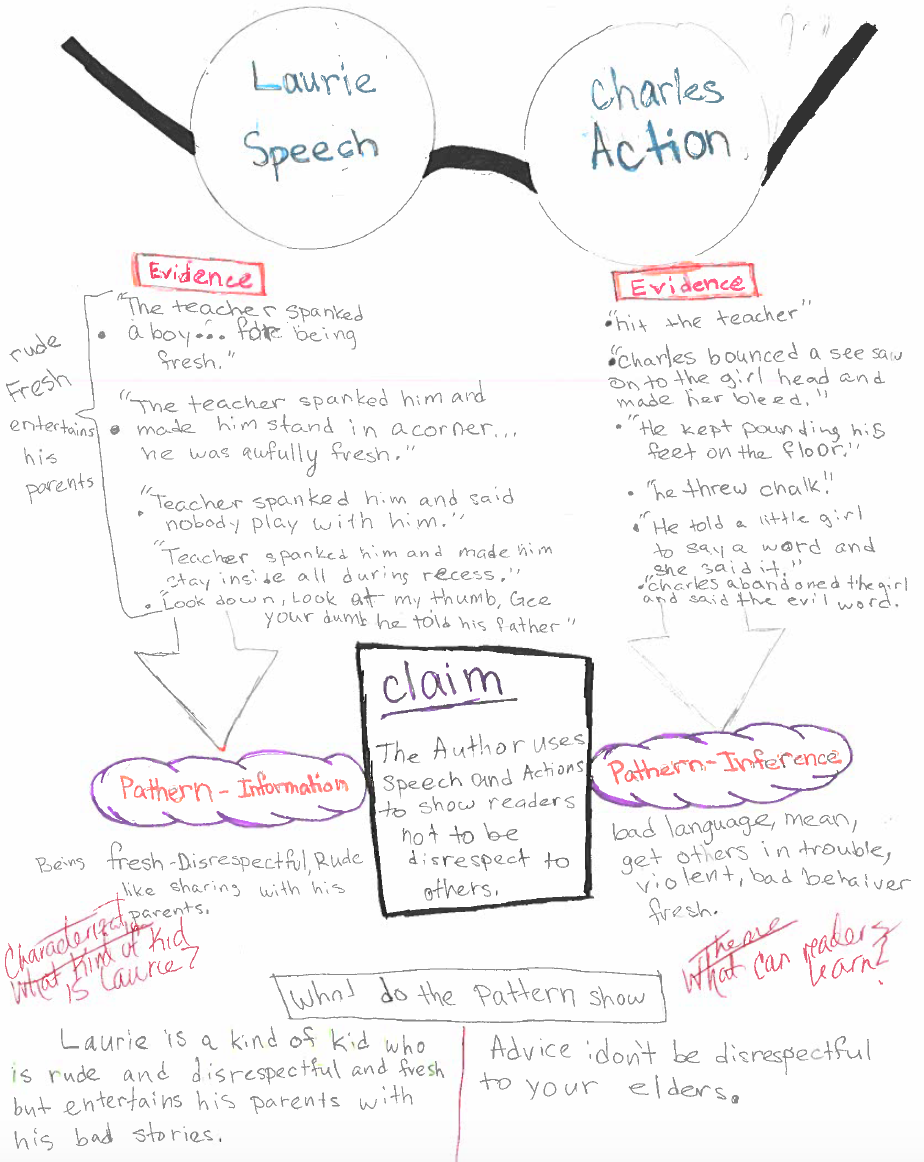 Laurie
Speech
Charles
Action
Evidence
"The teacher spanked
• a boy... for being
fresh."
"The teacher spanked him and
• made him stand in a corner...
he was awfully fresh."
"Teacher spanked him and said
• nobody play with him."
"Teacher spanked him and made him
stay inside all during recess."
• "Look down, Look at my thumb, Gee
your dumb he told his father"
rude
Fresh
entertains
his
parents
Evidence
• "hit the teacher"
• "Charles bounced a see saw
on to the girl head and
made her bleed."
• "He kept pounding his
feet on the floor."
• "he threw chalk."
• "He told a little girl
to say a word and
she said it."
• "Charles abandoned the girl
and said the evil word.
Claim
The Author uses
Speech and Actions
to show readers
not to be
disrespect to
others.
Pathern - Information
Being fresh - Disrespectful, Rude
like sharing with his
parents.
Pathern - Inference
bad language, mean,
get others in trouble,
violent, bad behaiver
fresh.
What Kind of Kid
is Laurie?
Theme
What can readers
learn?
What do the Pattern show
Laurie is a kind of kid who
is rude and disrespectful and fresh
but entertains his parents with
his bad stories.
Advice : don't be disrespectful
to your elders.